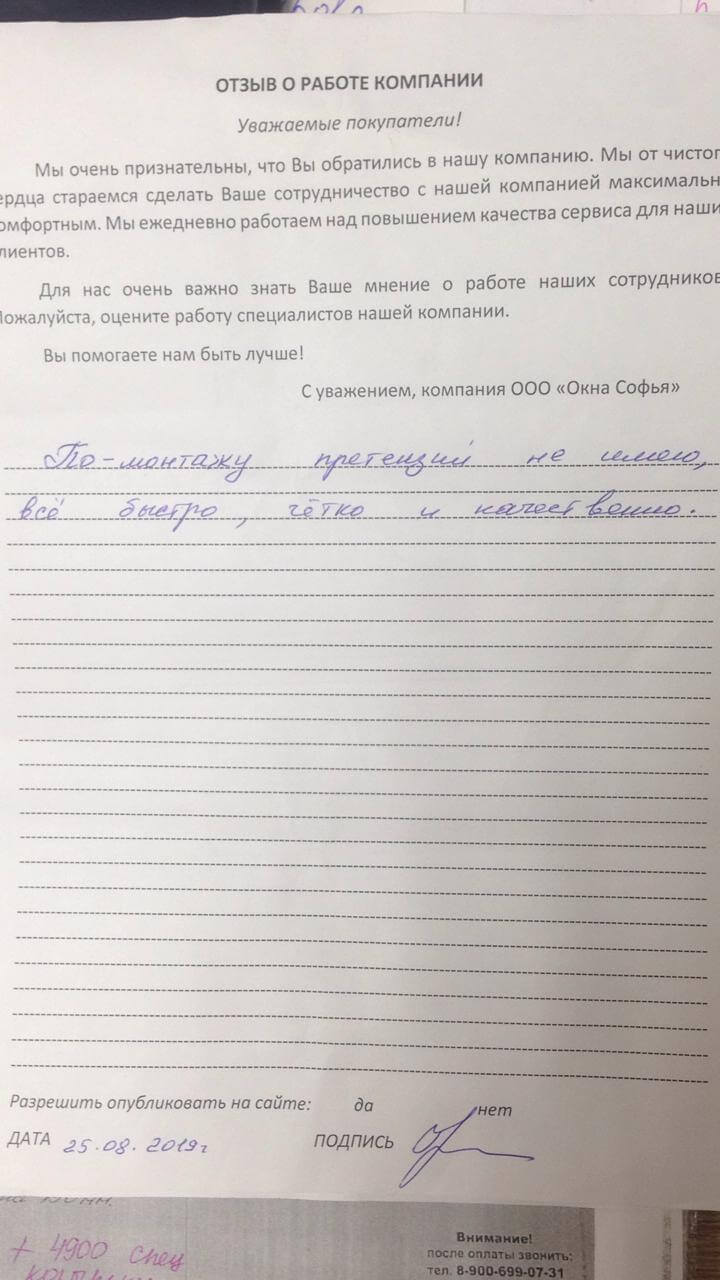 ОТЗЫВ О РАБОТЕ КОМПАНИИ
Уважаемые покупатели!
Мы очень признательны, что Вы обратились в нашу компанию. Мы от чистог
ердца стараемся сделать Ваше сотрудничество с нашей компанией максимальн
омфортным. Мы ежедневно работаем над повышением качества сервиса для наши
лиентов.
Для нас очень важно знать Ваше мнение о работе наших сотрудников
Пожалуйста, оцените работу специалистов нашей компании.
Вы помогаете нам быть лучше!
С уважением, компания ООО «Окна Софья»
По-монтажу претензий не имею,
всё быстро, чётко и качественно.
Разрешить опубликовать на сайте: да нет
ДАТА 25.08.2019г ПОДПИСЬ
+ 4900 спец
Внимание!
после оплаты звонить:
тел. 8-900-699-07-31